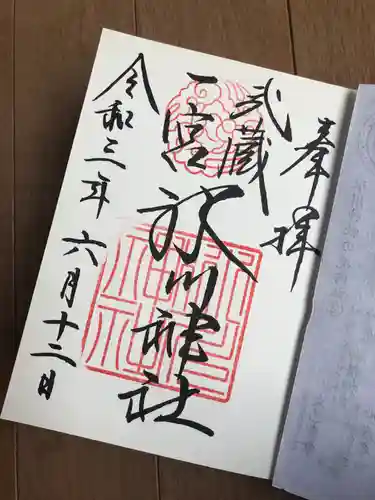 奉拝
武蔵
一宮
氷川神社
令和三年六月十二日